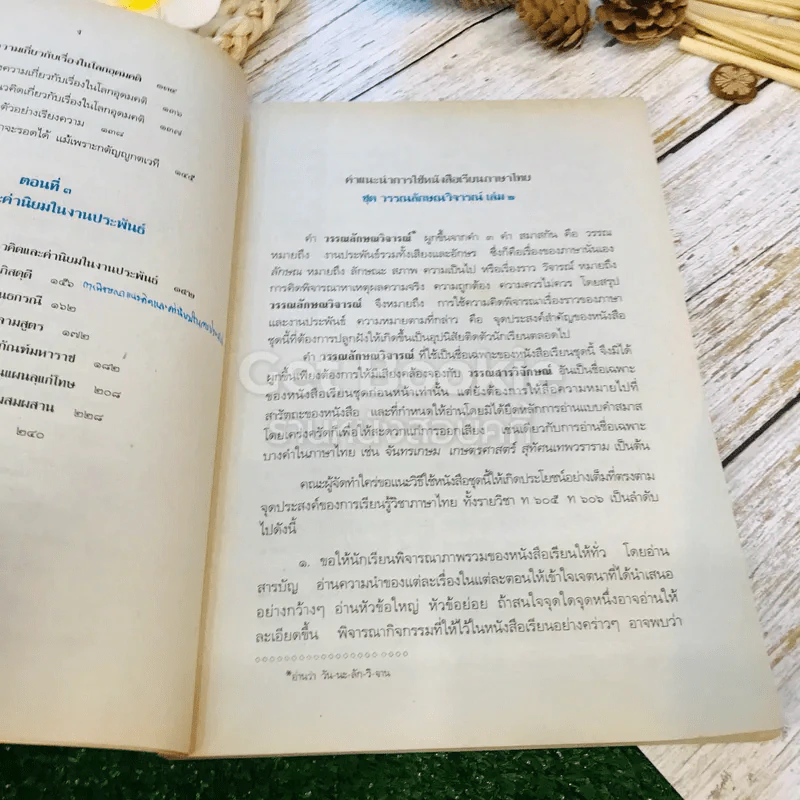 ง
ความเกี่ยวกับเรื่องในโลกอุดมคติ ๑๓๔
งความเกี่ยวกับเรื่องในโลกอุดมคติ ๑๓๖
วคิดเกี่ยวกับเรื่องในโลกอุดมคติ ๑๓๗
ตัวอย่างเรียงความ ๑๓๘
าจะรอดได้ แม้เพราะกตัญญูกตเวที ๑๔๕
ตอนที่ ๓
ะค่านิยมในงานประพันธ์
วคิดและค่านิยมในงานประพันธ์ ๑๕๒
ภิสดุดี ๑๕๖
นธกวณี ๑๖๒
ามสูตร ๑๗๒
กัณฑ์มหาราช ๑๘๒
นแผนลุแก่โทษ ๒๐๘
มสมผสาน ๒๒๘
๒๔๐
คำแนะนำการใช้หนังสือเรียนภาษาไทย
ชุด วรรณลักษณวิจารณ์ เล่ม ๒
คำ วรรณลักษณวิจารณ์* ผูกขึ้นจากคำ ๓ คำ สมาสกัน คือ วรรณ
หมายถึง งานประพันธ์รวมทั้งเสียงและอักษร ซึ่งก็คือเรื่องของภาษานั่นเอง
ลักษณ หมายถึง ลักษณะ สภาพ ความเป็นไป หรือเรื่องราว วิจารณ์ หมายถึง
การคิดพิจารณาหาเหตุผลความจริง ความถูกต้อง ความควรไม่ควร โดยสรุป
วรรณลักษณวิจารณ์ จึงหมายถึง การใช้ความคิดพิจารณาเรื่องราวของภาษา
และงานประพันธ์ ความหมายตามที่กล่าว คือ จุดประสงค์สำคัญของหนังสือ
ชุดนี้ที่ต้องการปลูกฝังให้เกิดขึ้นเป็นอุปนิสัยติดตัวนักเรียนตลอดไป
คำ วรรณลักษณวิจารณ์ ที่ใช้เป็นชื่อเฉพาะของหนังสือเรียนชุดนี้ จึงมิได้
ผูกขึ้นเพียงต้องการให้มีเสียงคล้องจองกับ วรรณสารวิจักษณ์ อันเป็นชื่อเฉพาะ
ของหนังสือเรียนชุดก่อนหน้าเท่านั้น แต่ยังต้องการให้สื่อความหมายไปที่
สารัตถะของหนังสือ และที่กำหนดให้อ่านโดยมิได้ยึดหลักการอ่านแบบคำสมาส
โดยเคร่งครัดก็เพื่อให้สะดวกแก่การออกเสียง เช่นเดียวกับการอ่านชื่อเฉพาะ
บางคำในภาษาไทย เช่น จันทรเกษม เกษตรศาสตร์ สุทัศนเทพวราราม เป็นต้น
คณะผู้จัดทำใคร่ขอแนะวิธีใช้หนังสือชุดนี้ให้เกิดประโยชน์อย่างเต็มที่ตรงตาม
จุดประสงค์ของการเรียนรู้วิชาภาษาไทย ทั้งรายวิชา ท ๖๐๕ ท ๖๐๖ เป็นลำดับ
ไปดังนี้
๑. ขอให้นักเรียนพิจารณาภาพรวมของหนังสือเรียนให้ทั่ว โดยอ่าน
สารบัญ อ่านความนำของแต่ละเรื่องในแต่ละตอนให้เข้าใจเจตนาที่ได้นำเสนอ
อย่างกว้างๆ อ่านหัวข้อใหญ่ หัวข้อย่อย ถ้าสนใจจุดใดจุดหนึ่งอาจอ่านให้
ละเอียดขึ้น พิจารณากิจกรรมที่ให้ไว้ในหนังสือเรียนอย่างคร่าวๆ อาจพบว่า
*อ่านว่า วัน-นะ-ลัก-วิ-จาน